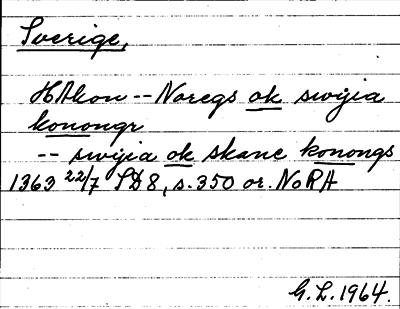 Sverige,
HAkon -- Noregs ok swijia
konongr
-- swijia ok skane konongs
1363 22/7 SD8, s. 350 or. NoRA
G.L. 1964.